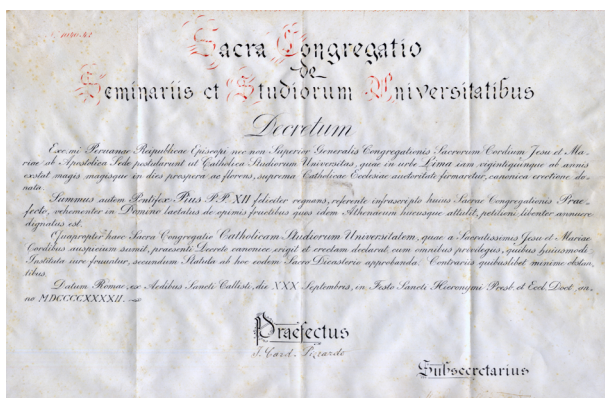 Sacra Congregatio
de
Seminariis et Studiorum Universitatibus
Decretum
Exc.mi Peruanae Reipublicae Episcopi nec non Superior Generalis Congregationis Sacrorum Cordium Jesu et Ma-
riae ab Apostolica Sede postularunt ut Catholica Studiorum Universitas, quae in urbe Lima iam vigintiquinque ab annis
exstat magis magisque in dies prospera ac florens, suprema Catholicae Ecclesiae auctoritate firmaretur, canonica erectione do-
nata.
Summus autem Pontifex Pius P.P. XII feliciter regnans, referente infrascripto huius Sacrae Congregationis Prae-
fecto, vehementer in Domino laetatus de opimis fructibus quos idem Athenaeum hucusque attulit, petitioni libenter annuere
dignatus est.
Quapropter haec Sacra Congregatio Catholicam Studiorum Universitatem, quae a Sacratissimis Jesu et Mariae
Cordibus auspicium sumit, praesenti Decreto canonice erigit et erectam declarat cum omnibus privilegiis, quibus huiusmodi
Instituta iure fruuntur, secundum Statuta ab hoc eodem Sacro Dicasterio approbanda. Contrariis quibuslibet minime obstan-
tibus.
Datum Romae, ex Aedibus Sancti Callisti, die XXX Septembris, in Festo Sancti Hieronymi Presb. et Eccl. Doct., an-
no MDCCCCXXXXII.
Praefectus
J. Card. Pizzardo
Subsecretarius